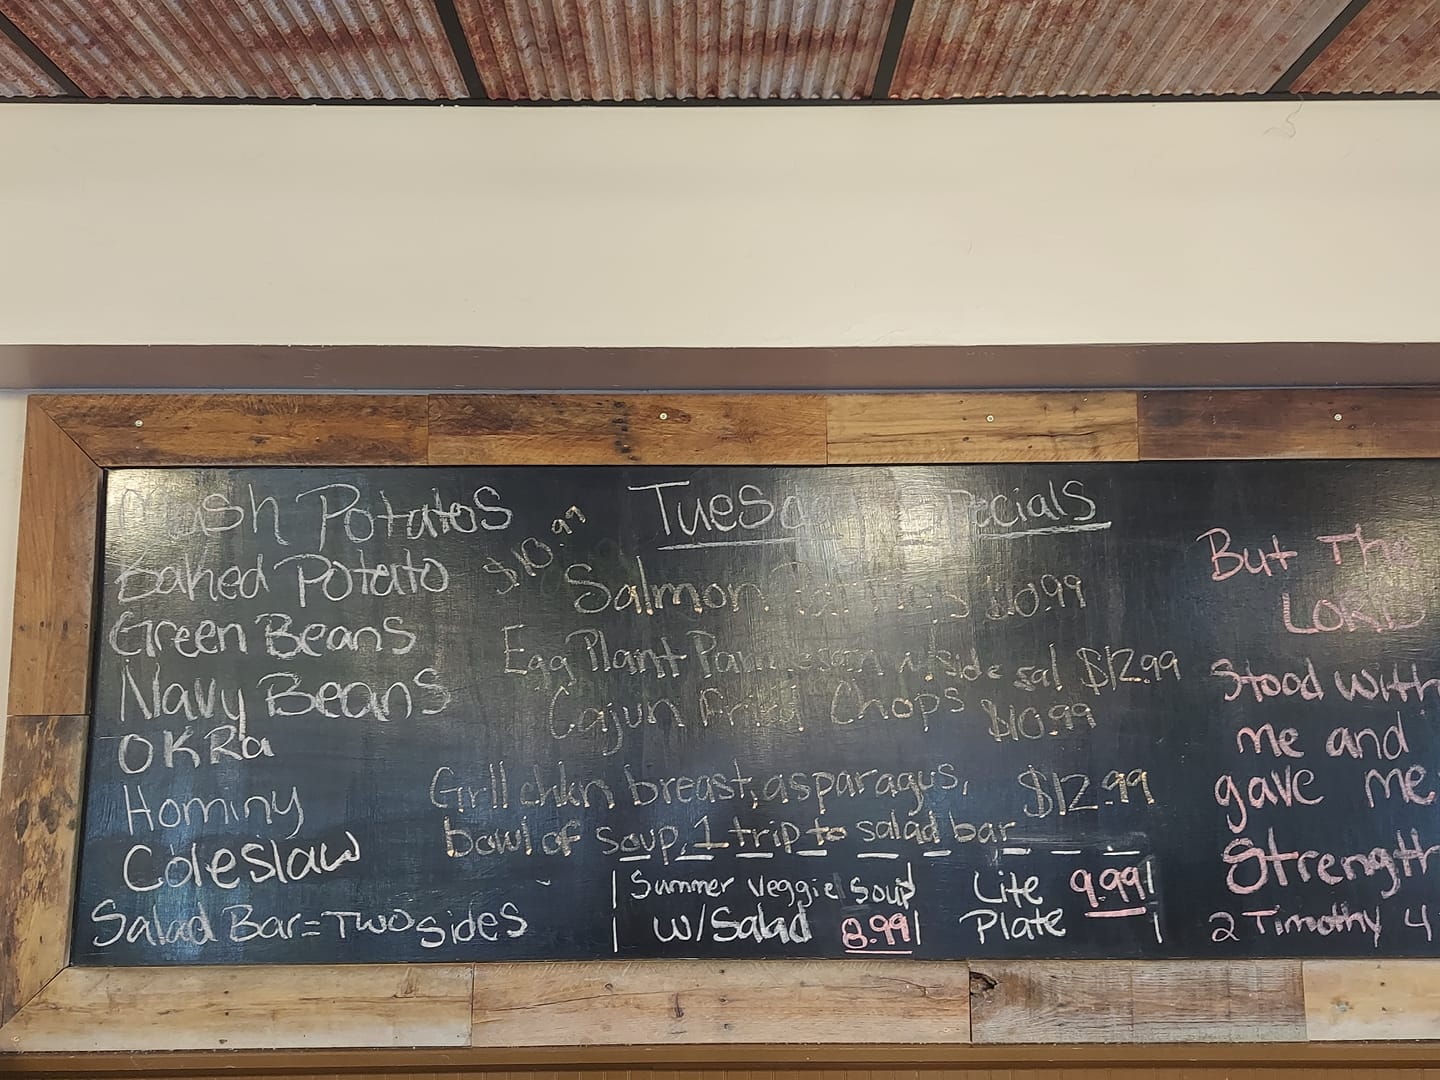 Mash Potatos
Baked Potato
Green Beans
Navy Beans
OKRa
Hominy
Coleslaw
Salad Bar=Two sides
$10.99
Tuesday Specials
Salmon $10.99
Egg Plant Parmesan w/side sal $12.99
Cajun Fried Chops $10.99
Grll chkn breast, asparagus, $12.99
bowl of soup, 1 trip to salad bar
Summer veggie soup
w/Salad 8.99
Lite 9.99
Plate
But The
LORD
Stood with
me and
gave me
Strength
2 Timothy 4